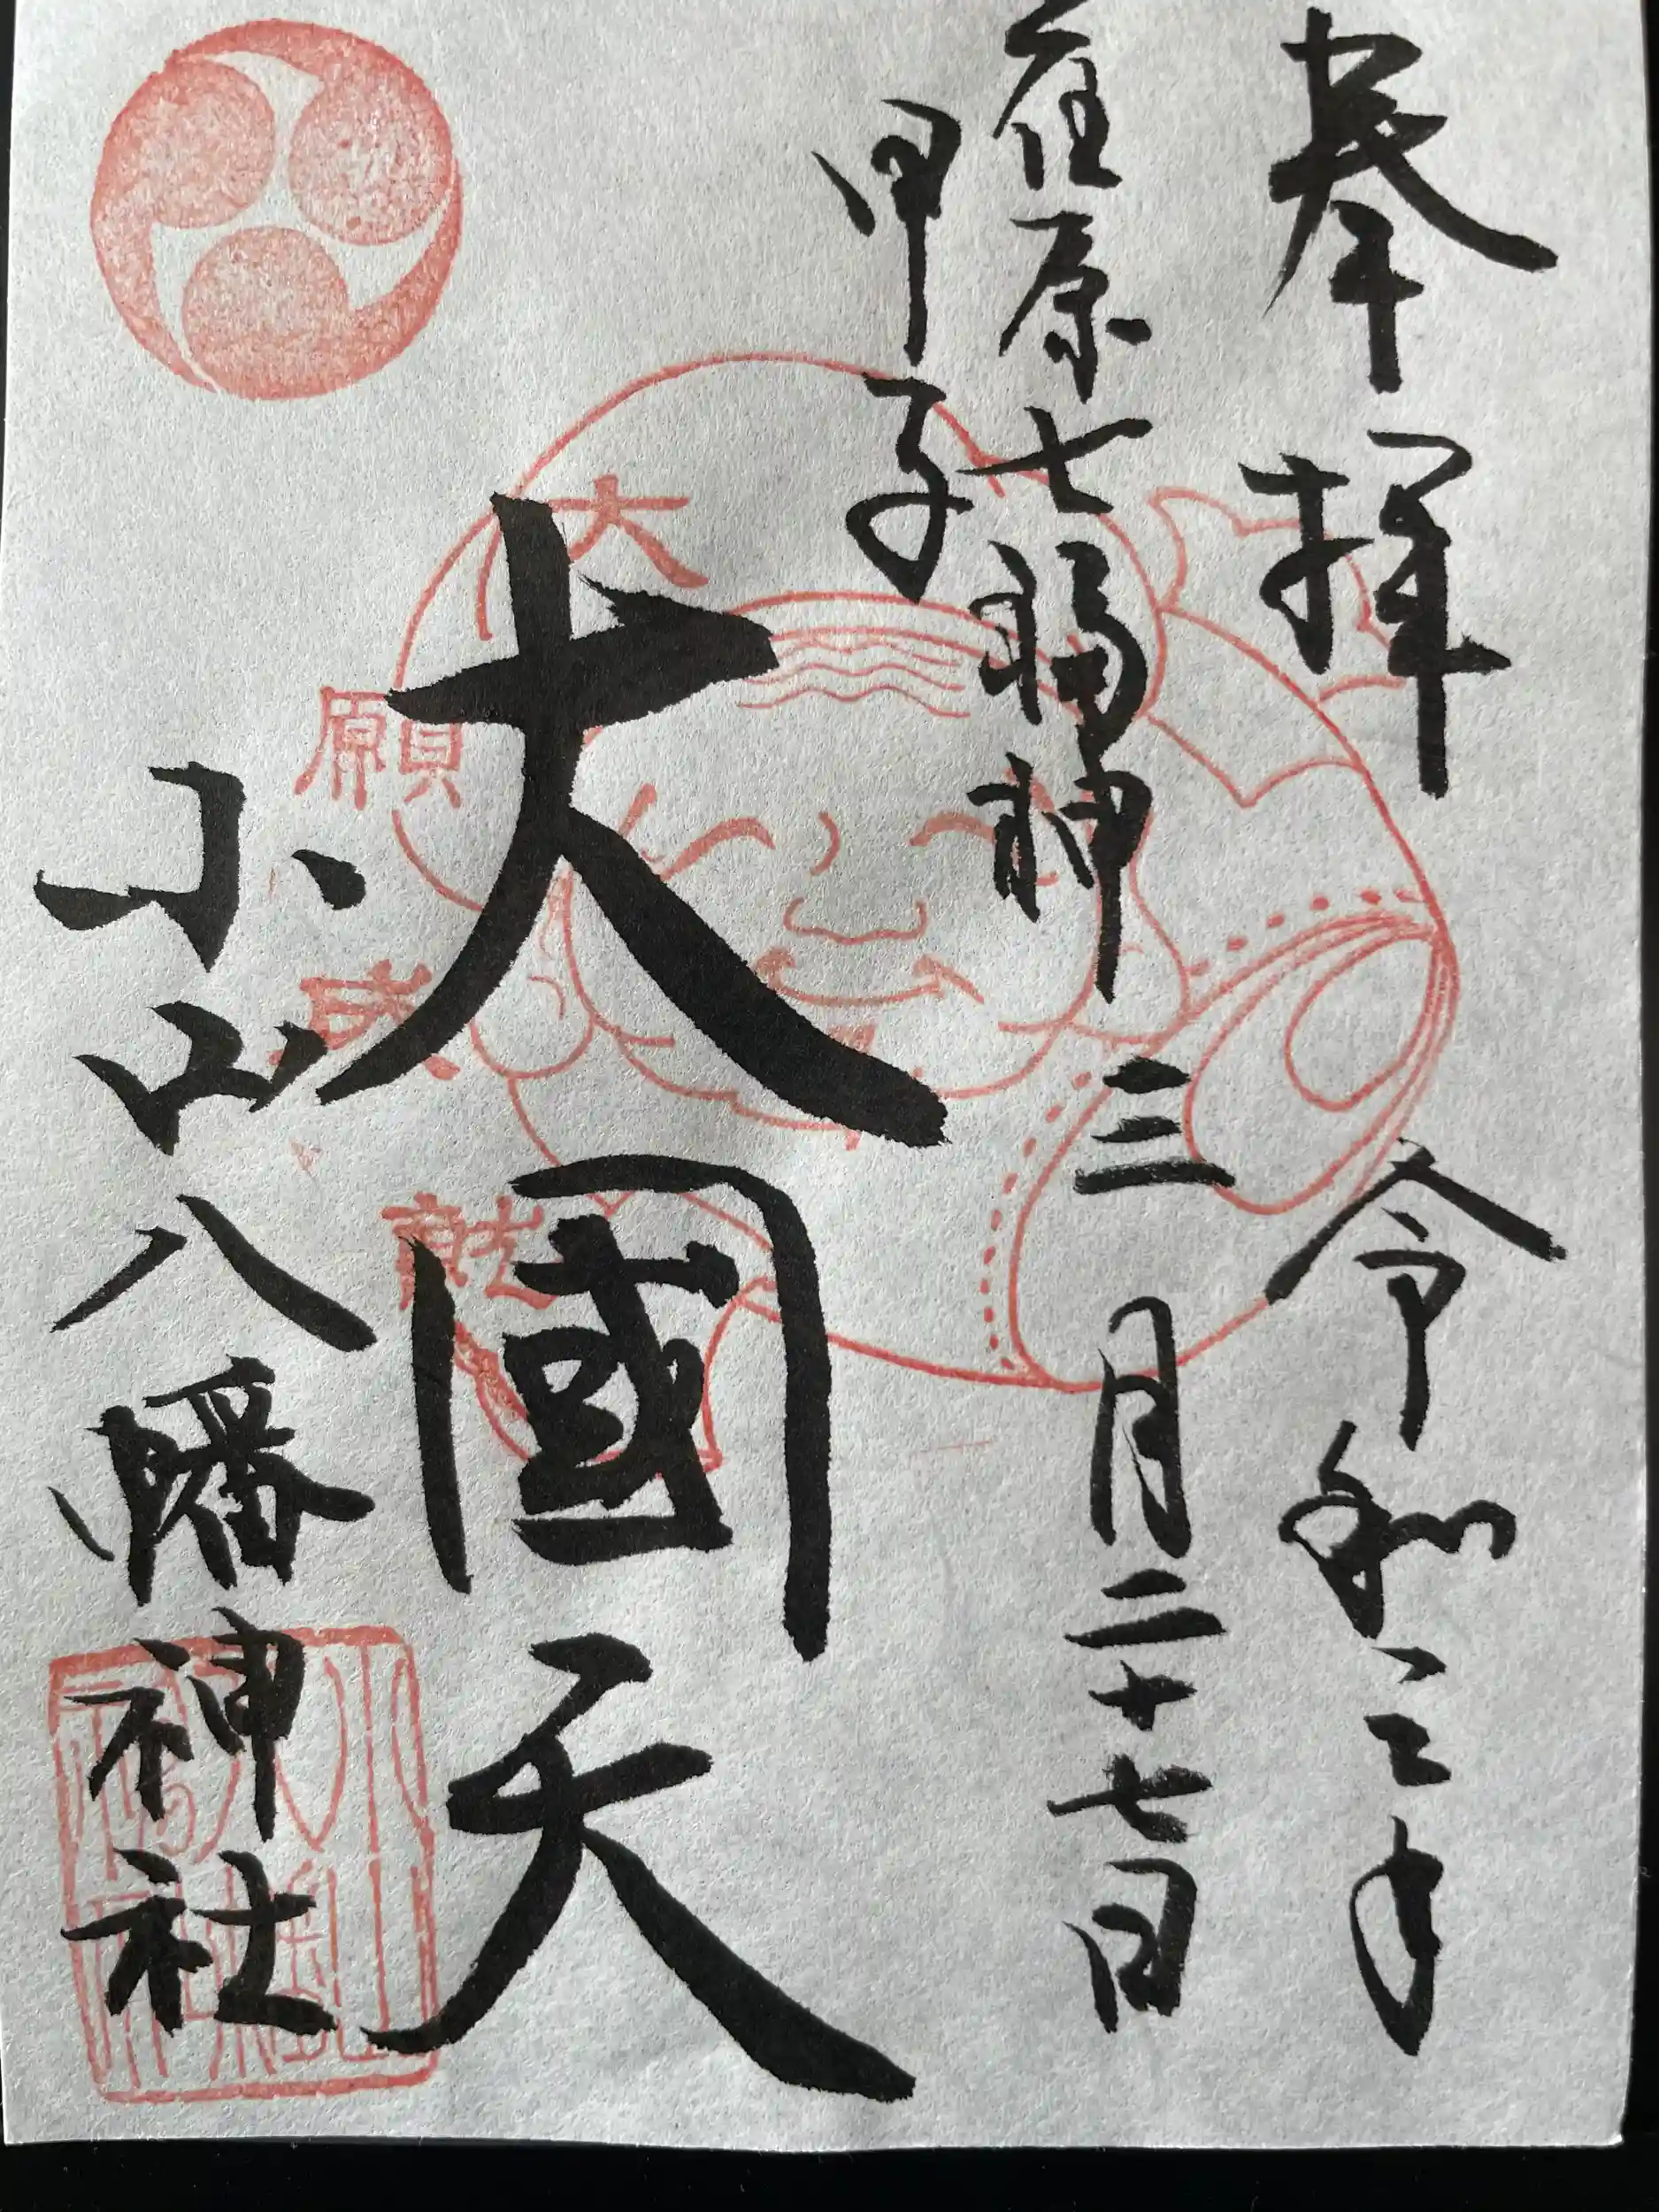 奉拝
令和三年
荏原七福神
三月二十七日
甲子
大國天
大願成就
小山八幡神社